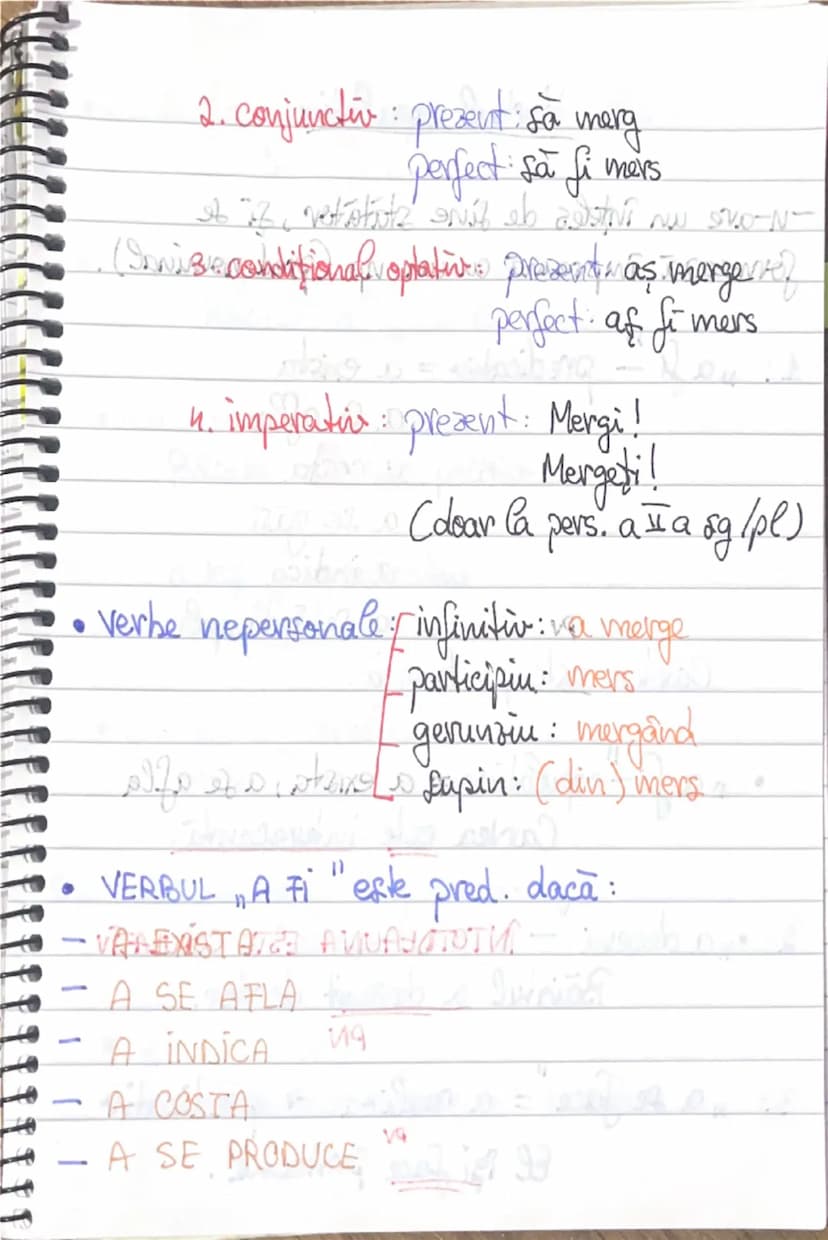 2. conjunctiv: prezent: să merg
perfect: să fi mers
3. condițional optativ: prezent: aș merge
perfect: aș fi mers
4. imperativ: prezent: Mergi!
Mergeți!
(doar la pers. a II a sg/pl)
• Verbe nepersonale: infinitiv: a merge
participiu: mers
gerunziu: mergând
supin: (din) mers
• VERBUL „A FI" este pred. dacă:
- A EXISTA
- A SE AFLA
- A INDICA
- A COSTA
- A SE PRODUCE